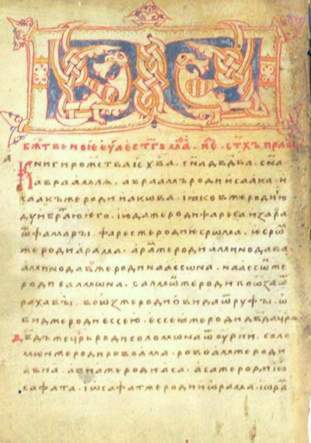 Книгирожⷭ҇тваіс҃х҃ва. сн҃адв҃два. сн҃а
авраамлѧ. авраамъродиісаака. и
саакъжеродиіакова. іаковжеродиію
дуибратиюѥго. іюдажеродифаресаизара
ѿфамары. фаресжеродиіесрѡма. иесрѡⷨ
жеродиарама. араⷨжеродиаминодава
аминодавⷤеродинаассѡна. наассѡⷩже
родисалмѡна. салмѡⷩжеродивоѡзаѿ
рахавы. воѡзжеродиѡвидаѿруфы. ѡ
виджеродиессею. ессеижеродидв҃дацр҃ѧ
дв҃дъжецр҃ьродисоломѡнаѿоурии. соло
мѡнжеродировоама. ровоамжероди
авиа. авиажеродиаса. асажеродиіѡ
сафата. іѡсафатжеродиіѡрама. іѡра